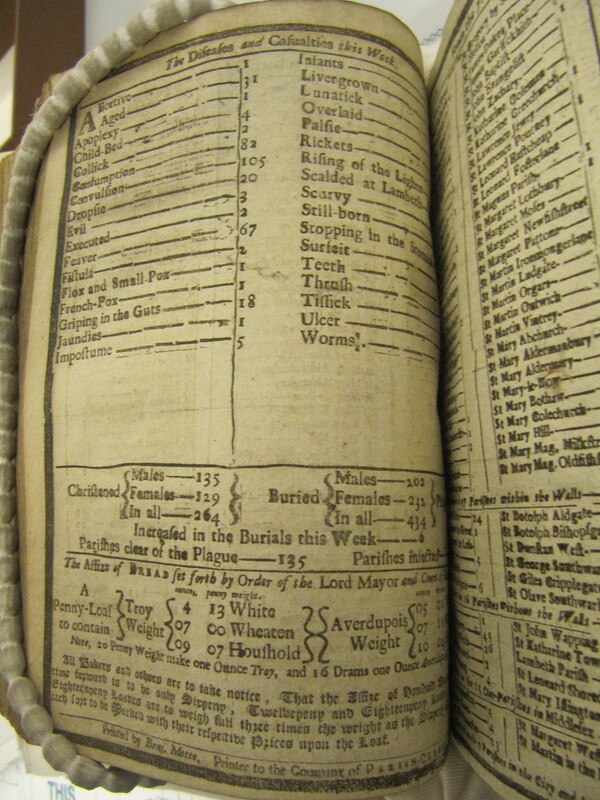 The Diseases and Casualties this Week.
Abortive 1
Aged 31
Apoplexy 1
Child-Bed 4
Collick 2
Consumption 82
Convulsion 105
Dropsie 20
Evil 3
Executed 2
Feaver 67
Fistula 2
Flox and Small-Pox 1
French-Pox 1
Griping in the Guts 18
Jaundies 1
Impostume 5
Infants
Livergrown
Lunatick
Overlaid
Palsie
Rickets
Rising of the Lights
Scalded at Lambeth
Scurvy
Still-born
Stopping in the
Surfeit
Teeth
Thrush
Tissick
Ulcer
Worms
Christened
Males—135
Females—129
In all—264
Buried
Males—202
Females—232
In all—434
Increased in the Burials this Week—6
Parishes clear of the Plague—135 Parishes infected
The Assize of BREAD set forth by Order of the Lord Mayor and Court
ounces, penny weight.
A Penny-Loaf to contain
Troy Weight
4 13 White
07 00 Wheaten
09 07 Houshold
Averdupois Weight
05
07
10
Note, 20 Penny Weight make one Ounce Troy, and 16 Drams one Ounce
All Bakers and others are to take notice, That the Assize of Houshold
time forward is to be only Sixpeny, Twelvepeny and Eighteenpeny
Eighteenpeny Loaves are to weigh full three times the weight as the Sixpeny
each sort to be Marked with their respective Prices upon the Loaf.
Printed by Benj. Motte, Printer to the Company of
St Katharine Coleman
St Katharine Creechurch
St Lawrence Jewry
St Lawrence Pountney
St Leonard Eastcheap
St Leonard Fosterlane
St Magnus Parish
St Margaret Lothbury
St Margaret Moses
St Margaret Newfishstreet
St Margaret Pattons
St Martin Ironmongerlane
St Martin Ludgate
St Martin Orgars
St Martin Outwich
St Martin Vintrey
St Mary Abchurch
St Mary Aldermanbury
St Mary Aldermary
St Mary-le-Bow
St Mary Bothaw
St Mary Colechurch
St Mary Hill
St Mary Mag. Milkstr
St Mary Mag. Oldfishst
Parishes within the Walls
St Botolph Aldgate
St Botolph Bishopsg
St Dunstan West
St George Southwar
St Giles Cripplegate
St Olave Southwar
Parishes without the Walls
St John Wapping
St Katharine Tow
Lambeth Parish
St Leonard Shored
St Mary Islington
Parishes in Middlesex
St Margaret West
St Martin in the
THIS